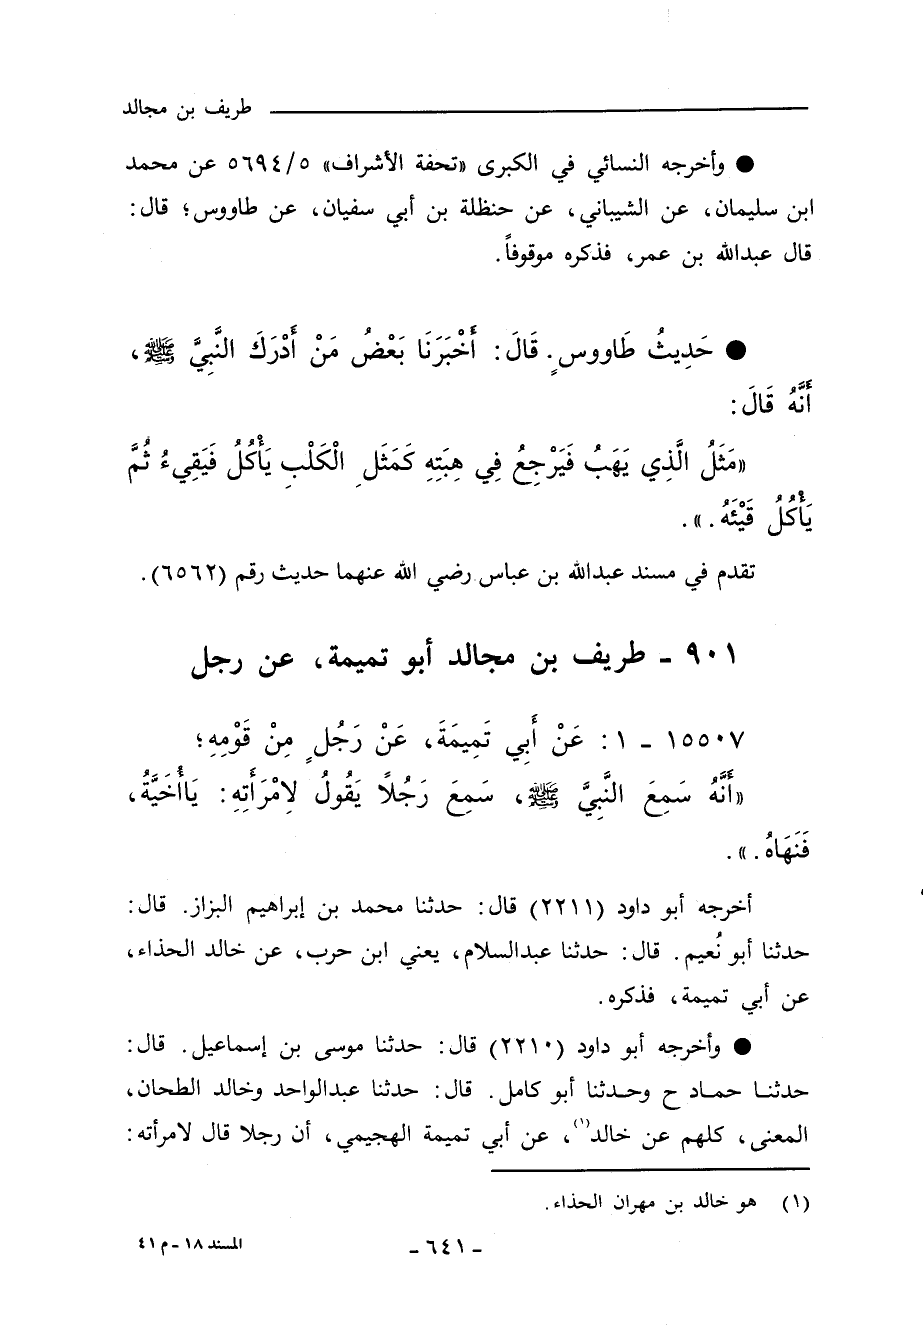 طريف بن مجالد
● وأخرجه النسائي في الكبرى «تحفة الأشراف» ٥٦٩٤/٥ عن محمد
ابن سليمان، عن الشيباني، عن حنظلة بن أبي سفيان، عن طاووس؛ قال:
قال عبدالله بن عمر، فذكره موقوفاً.
● حَدِيثُ طَاووسٍ. قَالَ: أَخْبَرَنَا بَعْضُ مَنْ أَدْرَكَ النَّبِيَّ ﷺ،
أَنَّهُ قَالَ:
«مَثَلُ الَّذِي يَهَبُ فَيَرْجِعُ فِي هِبَتِهِ كَمَثَلِ الْكَلْبِ يَأْكُلُ فَيَقِيءُ ثُمَّ
يَأْكُلُ قَيْئَهُ.».
تقدم في مسند عبدالله بن عباس رضي الله عنهما حديث رقم (٦٥٦٢).
٩٠١ - طريف بن مجالد أبو تميمة، عن رجل
١٥٥٠٧ - ١: عَنْ أَبِي تَمِيمَةَ، عَنْ رَجُلٍ مِنْ قَوْمِهِ؛
«أَنَّهُ سَمِعَ النَّبِيَّ ﷺ، سَمِعَ رَجُلاً يَقُولُ لِامْرَأَتِهِ: يَاأُخَيَّةُ،
فَنَهَاهُ.».
أخرجه أبو داود (٢٢١١) قال: حدثنا محمد بن إبراهيم البزاز. قال:
حدثنا أبو نُعيم. قال: حدثنا عبدالسلام، يعني ابن حرب، عن خالد الحذاء،
عن أبي تميمة، فذكره.
● وأخرجه أبو داود (٢٢١٠) قال: حدثنا موسى بن إسماعيل. قال:
حدثنا حماد ح وحدثنا أبو كامل. قال: حدثنا عبدالواحد وخالد الطحان،
المعنى، كلهم عن خالد(١)، عن أبي تميمة الهجيمي، أن رجلا قال لامرأته:
(١) هو خالد بن مهران الحذاء.
- ٦٤١ -
المسند ١٨ - م ٤١